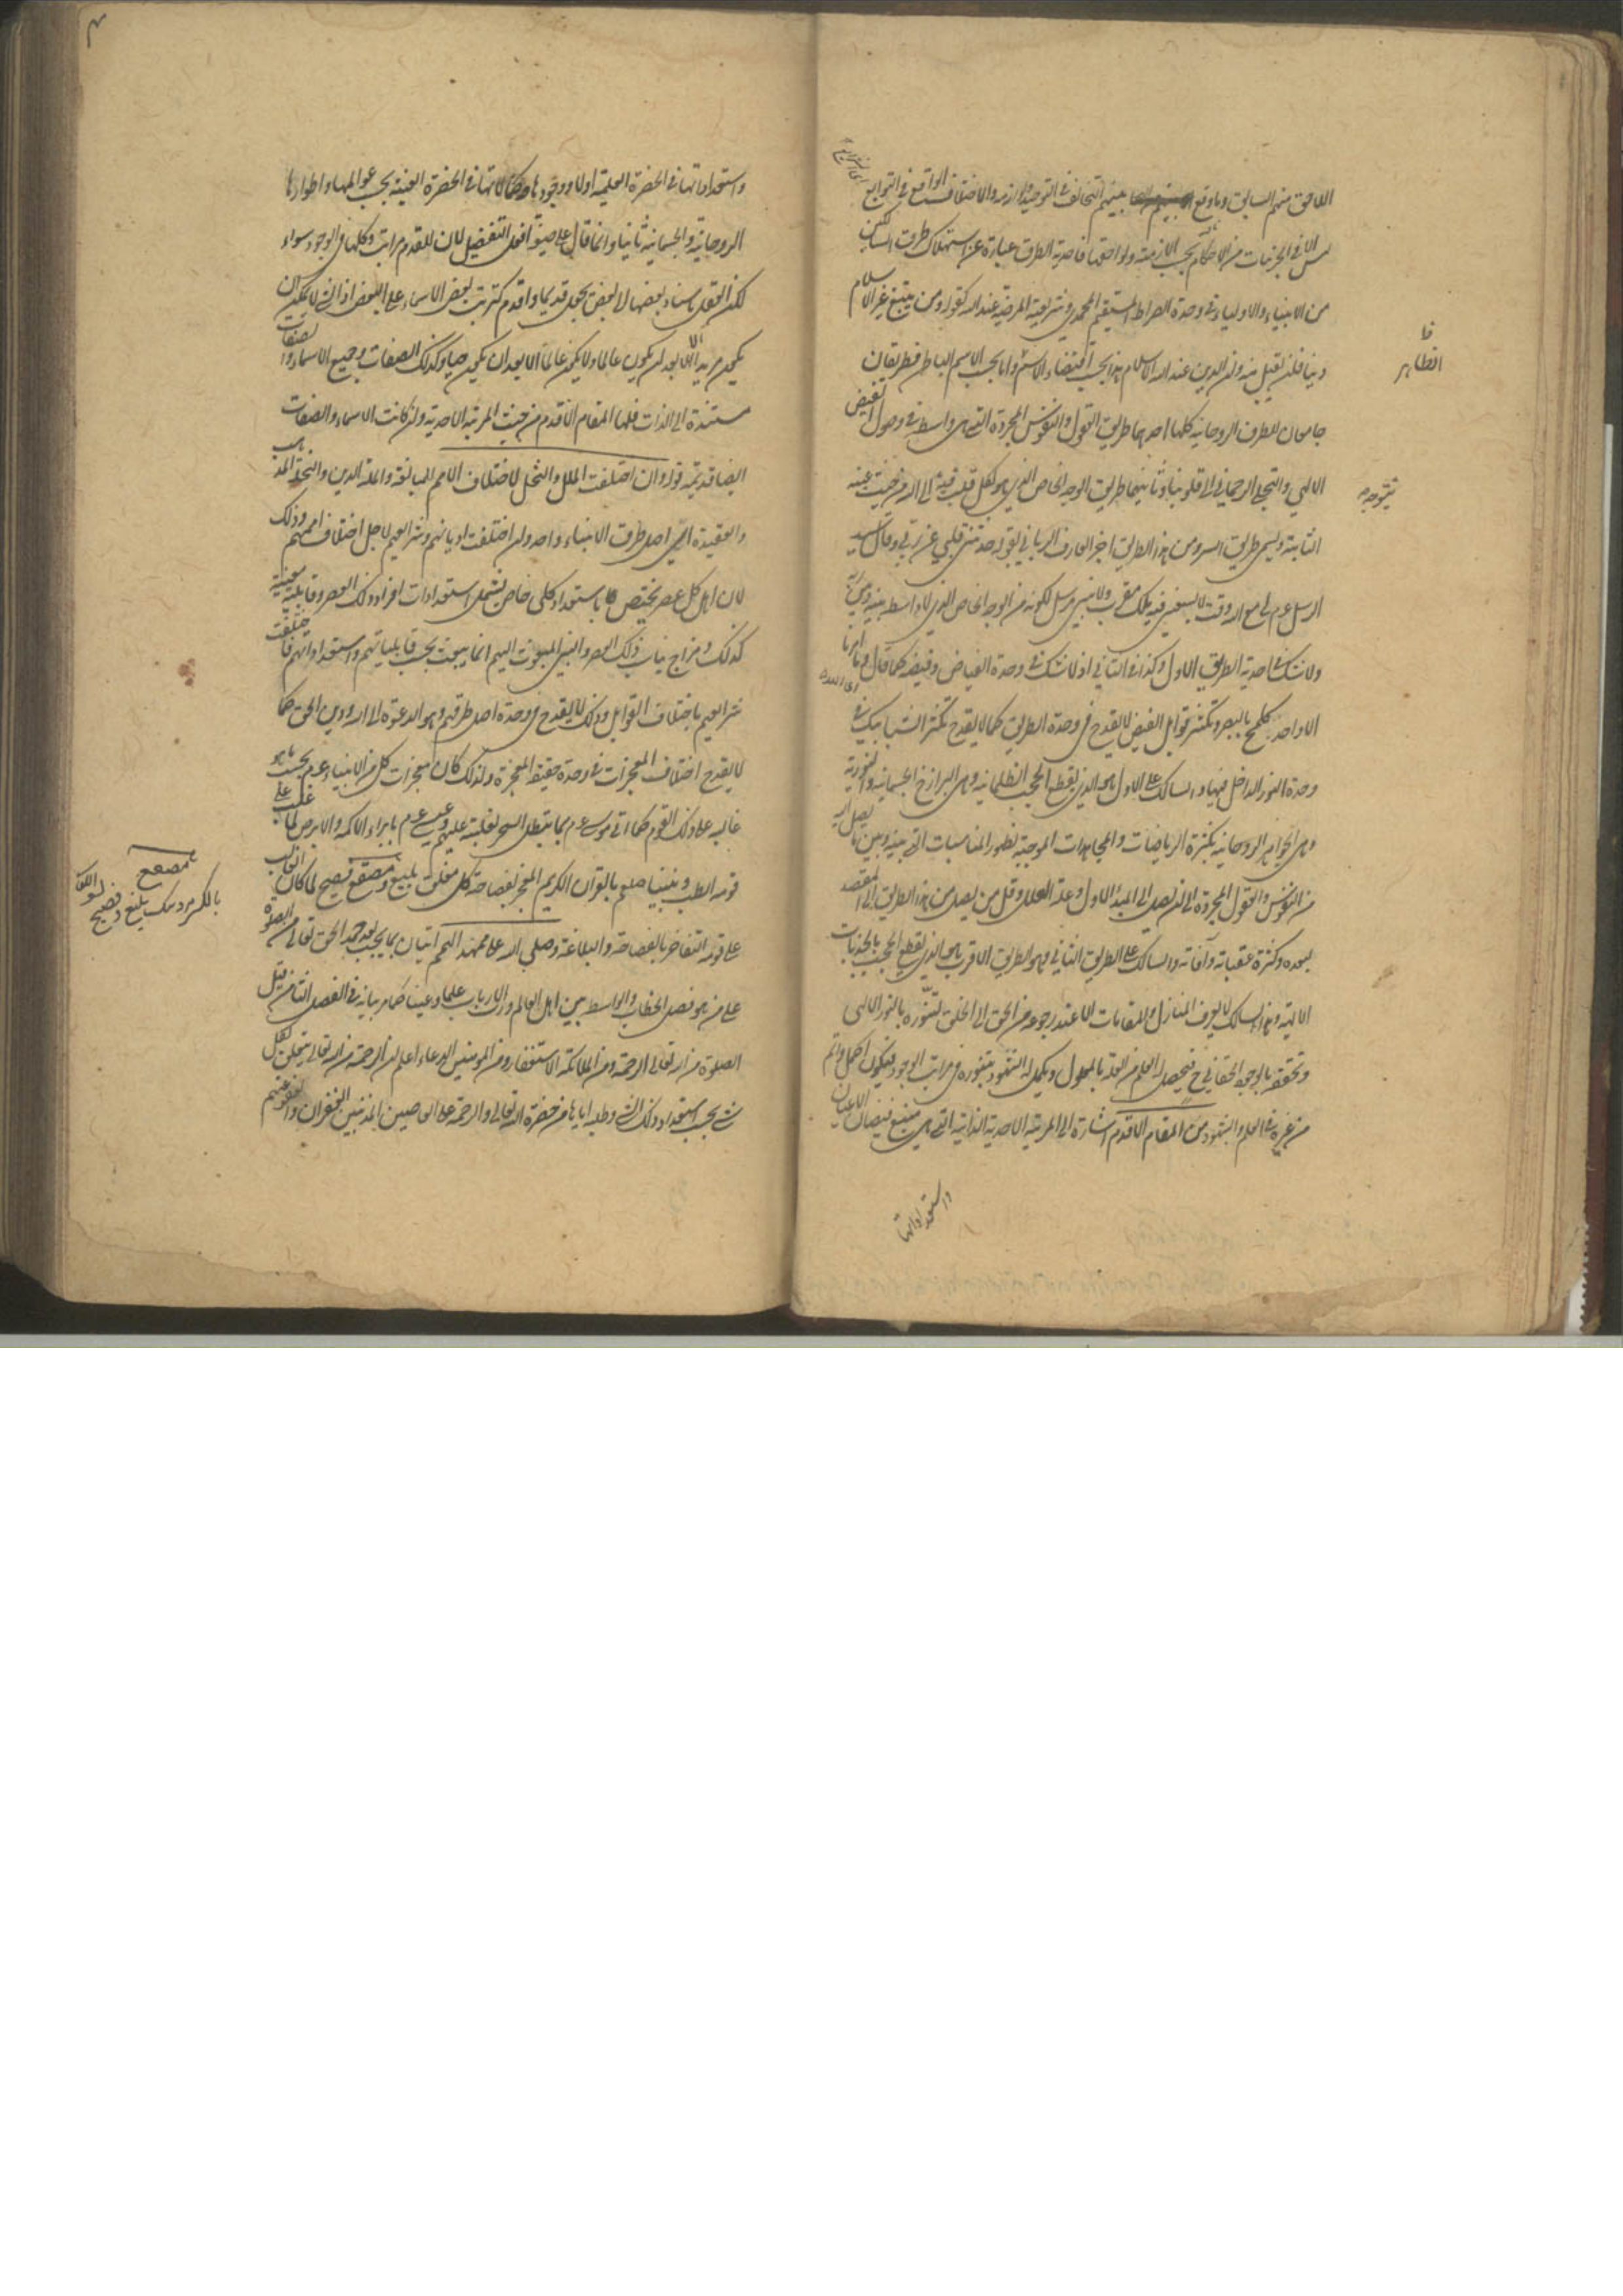 اللاحق منهم السابق وما وقع بينهم التخالف في التوحيد ولوازمه والاختلاف الواقع في الشرايع
ليس الا في الجزئيات من الاحكام بحسب الازمنة ولواحقها فاحدية الطرق عبارة عن استهلاك طرق السالكين
من الانبياء والاولياء في وحدة الصراط المستقيم المحمدي وشريعته المرضية عند الله كقوله ومن يبتغ غير الاسلام
دينا فلن يقبل منه وان الدين عند الله الاسلام هذا بحسب اقتضاء الاسم واما بحسب الاسم الباطن فطريقان
الظاهر
جامعان للطرق الروحانية كلها احدهما طريق العقول والنفوس المجردة التي هي واسطة في وصول الفيض
الالهي والتجلي الرحماني الى قلوبنا وثانيهما طريق الوجه الخاص الذي هو لكل قلب به الى الله من حيث عينه
يتوجه
الثابتة ويسمى طريق السر ومن هذا الطريق اخبر العارف الرباني بقوله حدثني قلبي عن ربي وقال سيد
الرسل عم لي مع الله وقت لا يسعني فيه ملك مقرب ولا نبي مرسل لكونه من الوجه الخاص الذي لا واسطة بينه وبين ربه
ولا شك في احدية الطريق الاول وكذا في الثاني اذ لا شك في وحدة الفياض وفيضه كما قال وما امرنا
الا واحدة كلمح بالبصر وتكثر قوابل الفيض لا يقدح في وحدة الطريق كما لا يقدح تكثر الشبابيك في
وحدة النور الداخل فيها والسالك على الاول هو الذي يقطع الحجب الظلمانية وهي البرازخ الجسمانية والنورية
وهي الجواهر الروحانية بكثرة الرياضات والمجاهدات الموجبة لظهور المناسبات التي بينه وبين ما يصل اليه
من النفوس والعقول المجردة الى ان يصل الى المبدأ الاول وعلة العلل وقل من يصل من هذا الطريق الى المقصد
لبعده وكثرة عقباته وآفاته والسالك على الطريق الثاني وهو الطريق الاقرب هو الذي يقطع الحجب بالجذبات
الالهية وهذا السالك لا يعرف المنازل والمقامات الا عند رجوعه من الحق الى الخلق لتنوره بالنور الالهي
وتحققه بالوجود الحقاني ح فيحصل له العلم من العلة بالمعلول ويكمل له الشهود بتنوره في مراتب الوجود فيكون اكمل واتم
من غيره في العلم والشهود من المقام الاقدم اشارة الى المرتبة الاحدية الذاتية التي هي منبع فيضان الاعيان
واستعداداتها
واستعداداتها في الحضرة العلمية اولا ووجودها وكمالاتها في الحضرة العينية بحسب عوالمها واطوارها
الروحانية والجسمانية ثانيا وانما قال على صيغة افعل التفضيل لان للقدم مراتب وكلها في الوجود سواء
لكن العقل باسناد بعضها الى بعض يجعل قديما واقدم كترتب بعض الاسماء على البعض اذ الشيء لا يمكن ان
يكون مريدا الا بعد ان يكون عالما ولا يكون عالما الا بعد ان يكون حيا وكذلك الصفات وجميع الاسماء والصفات
مستندة الى الذات فلها المقام الاقدم من حيث المرتبة الاحدية وان كانت الاسماء والصفات
ايضا قديمة قوله وان اختلفت الملل والنحل لاختلاف الامم للمبالغة والملة الدين والنحلة المذهب
والعقيدة اي اصل طرق الانبياء واحد وان اختلفت اديانهم وشرايعهم لاجل اختلاف اممهم وذلك
لان اهل كل عصر يختص باستعداد كلي خاص يشمل استعدادات افراد ذلك العصر وقابلية معينة
كذلك ومزاج يناسب ذلك العصر والنبي المبعوث اليهم انما يبعث بحسب قابلياتهم واستعداداتهم فاختلفت
شرايعهم باختلاف القوابل وذلك لا يقدح في وحدة اصل طرقهم وهو الدعوة الى الله ودين الحق كما
لا يقدح اختلاف المعجزات في وحدة حقيقة المعجزة ولذلك كان معجزات كل من الانبياء عم بحسب ما هو
غالب على ذلك القوم كما اتى موسى عم بما يبطل السحر لغلبته عليهم وعيسى عم بابراء الاكمه والابرص لما غلب على
قومه الطب ونبينا صلعم بالقرآن الكريم المعجز بفصاحته كل مفلق بليغ ومصقع فصيح لما كان الغالب
على قومه التفاخر بالفصاحة والبلاغة وصلى الله على ممد الهمم اتيان بما يجب بعد حمد الحق تعالى من الصلوة
على من هو فصل الخطاب والواسطة بين اهل العالم ورب الارباب علما وعينا كما مر بيانه في الفصل الثامن قيل
الصلوة من الله تعالى الرحمة ومن الملائكة الاستغفار ومن المؤمنين الدعاء اعلم ان الرحمة من الله تعالى يتعلق بكل
شيء بحسب استعداد ذلك الشيء وطلبه اياها من حضرة الله تعالى والرحمة على العاصين المذنبين الغفران والعفو عنهم
مصقع
بالكسر
بليغ وفصيح